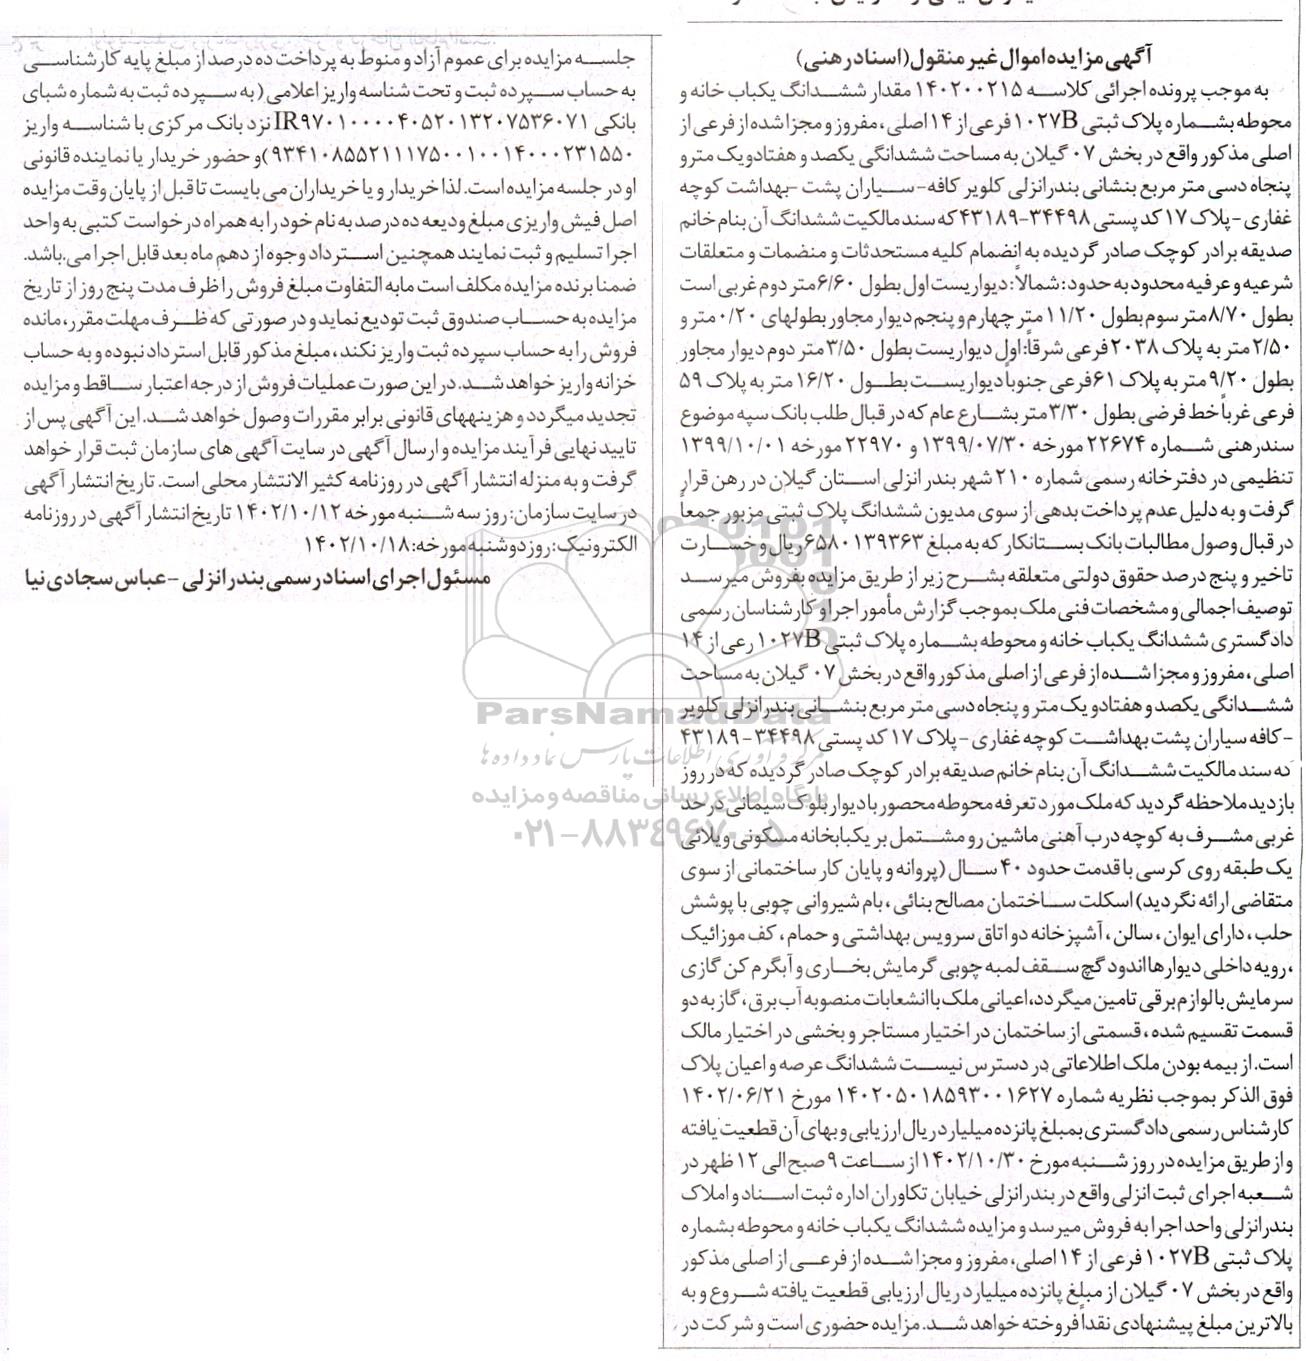 آگهی مزایده اموال غیر منقول (اسناد رهنی)
به موجب پرونده اجرائی کلاسه ۱۴۰۲۰۰۲۱۵ مقدار ششدانگ یکباب خانه و
محوطه بشماره پلاک ثبتی ۱۰۲۷B فرعی از ۱۴ اصلی، مفروز و مجزا شده از فرعی از
اصلی مذکور واقع در بخش ۰۷ گیلان به مساحت ششدانگی یکصد و هفتاد و یک متر و
پنجاه دسی متر مربع بنشانی بندرانزلی کلویر کافه- سیاران پشت -بهداشت کوچه
غفاری - پلاک ۱۷ کد پستی ۳۴۴۹۸-۴۳۱۸۹ که سند مالکیت ششدانگ آن بنام خانم
صدیقه برادر کوچک صادر گردیده به انضمام کلیه مستحدثات و منضمات و متعلقات
شرعیه و عرفیه محدود به حدود: شمالاً: دیواریست اول بطول ۶/۶۰ متر دوم غربی است
بطول ۸/۷۰ متر سوم بطول ۱۱/۲۰ متر چهارم و پنجم دیوار مجاور بطولهای ۰/۲۰ متر و
۲/۵۰ متر به پلاک ۲۰۳۸ فرعی شرقاً: اول دیواریست بطول ۳/۵۰ متر دوم دیوار مجاور
بطول ۹/۲۰ متر به پلاک ۶۱ فرعی جنوباً دیواریست بطول ۱۶/۲۰ متر به پلاک ۵۹
فرعی غرباً خط فرضی بطول ۳/۳۰ متر بشارع عام که در قبال طلب بانک سپه موضوع
سند رهنی شماره ۲۲۶۷۴ مورخه ۱۳۹۹/۰۷/۳۰ و ۲۲۹۷۰ مورخه ۱۳۹۹/۱۰/۰۱
تنظیمی در دفترخانه رسمی شماره ۲۱۰ شهر بندر انزلی استان گیلان در رهن قرار
گرفت و به دلیل عدم پرداخت بدهی از سوی مدیون ششدانگ پلاک ثبتی مزبور جمعاً
در قبال وصول مطالبات بانک بستانکار که به مبلغ ۶۵۸۰۱۳۹۳۶۳ ریال و خسارت
تاخیر و پنج درصد حقوق دولتی متعلقه بشرح زیر از طریق مزایده بفروش میرسد
توصیف اجمالی و مشخصات فنی ملک بموجب گزارش مأمور اجرا و کارشناسان رسمی
دادگستری ششدانگ یکباب خانه و محوطه بشماره پلاک ثبتی ۱۰۲۷B رعی از ۱۴
اصلی، مفروز و مجزا شده از فرعی از اصلی مذکور واقع در بخش ۰۷ گیلان به مساحت
ششدانگی یکصد و هفتاد و یک متر و پنجاه دسی متر مربع بنشانی بندرانزلی کلویر
-کافه سیاران پشت بهداشت کوچه غفاری - پلاک ۱۷ کد پستی ۳۴۴۹۸-۴۳۱۸۹
که سند مالکیت ششدانگ آن بنام خانم صدیقه برادر کوچک صادر گردیده که در روز
بازدید ملاحظه گردید که ملک مورد تعرفه محوطه محصور با دیوار بلوک سیمانی در حد
غربی مشرف به کوچه درب آهنی ماشین رو مشتمل بر یکبابخانه مسکونی ویلائی
یک طبقه روی کرسی با قدمت حدود ۴۰ سال (پروانه و پایان کار ساختمانی از سوی
متقاضی ارائه نگردید) اسکلت ساختمان مصالح بنائی، بام شیروانی چوبی با پوشش
حلب، دارای ایوان، سالن، آشپزخانه دو اتاق سرویس بهداشتی و حمام، کف موزائیک
،رویه داخلی دیوارها اندود گچ سقف لمبه چوبی گرمایش بخاری و آبگرم کن گازی
سرمایش با لوازم برقی تامین میگردد، اعیانی ملک با انشعابات منصوبه آب برق، گاز به دو
قسمت تقسیم شده، قسمتی از ساختمان در اختیار مستاجر و بخشی در اختیار مالک
است. از بیمه بودن ملک اطلاعاتی در دسترس نیست ششدانگ عرصه و اعیان پلاک
فوق الذکر بموجب نظریه شماره ۱۴۰۲۰۵۰۱۸۵۹۳۰۰۱۶۲۷ مورخ ۱۴۰۲/۰۶/۲۱
کارشناس رسمی دادگستری بمبلغ پانزده میلیارد ریال ارزیابی و بهای آن قطعیت یافته
و از طریق مزایده در روز شنبه مورخ ۱۴۰۲/۱۰/۳۰ از ساعت ۹ صبح الی ۱۲ ظهر در
شعبه اجرای ثبت انزلی واقع در بندرانزلی خیابان تکاوران اداره ثبت اسناد و املاک
بندرانزلی واحد اجرا به فروش میرسد و مزایده ششدانگ یکباب خانه و محوطه بشماره
پلاک ثبتی ۱۰۲۷B فرعی از ۱۴ اصلی، مفروز و مجزا شده از فرعی از اصلی مذکور
واقع در بخش ۰۷ گیلان از مبلغ پانزده میلیارد ریال ارزیابی قطعیت یافته شروع و به
بالاترین مبلغ پیشنهادی نقداً فروخته خواهد شد. مزایده حضوری است و شرکت در
جلسه مزایده برای عموم آزاد و منوط به پرداخت ده درصد از مبلغ پایه کارشناسی
به حساب سپرده ثبت و تحت شناسه واریز اعلامی ( به سپرده ثبت به شماره شبای
بانکی IR۹۷۰۱۰۰۰۰۴۰۵۲۰۱۳۲۰۷۵۳۶۰۷۱ نزد بانک مرکزی با شناسه واریز
۹۳۴۱۰۸۵۵۲۱۱۱۷۵۰۰۱۰۰۱۴۰۰۰۲۳۱۵۵۰) و حضور خریدار یا نماینده قانونی
او در جلسه مزایده است. لذا خریدار و یا خریداران می بایست تا قبل از پایان وقت مزایده
اصل فیش واریزی مبلغ ودیعه ده درصد به نام خود را به همراه درخواست کتبی به واحد
اجرا تسلیم و ثبت نمایند همچنین استرداد وجوه از دهم ماه بعد قابل اجرا می.باشد.
ضمنا برنده مزایده مکلف است مابه التفاوت مبلغ فروش را ظرف مدت پنج روز از تاریخ
مزایده به حساب صندوق ثبت تودیع نماید و در صورتی که ظرف مهلت مقرر، مانده
فروش را به حساب سپرده ثبت واریز نکند، مبلغ مذکور قابل استرداد نبوده و به حساب
خزانه واریز خواهد شد. در این صورت عملیات فروش از درجه اعتبار ساقط و مزایده
تجدید میگردد و هزینههای قانونی برابر مقررات وصول خواهد شد. این آگهی پس از
تایید نهایی فرآیند مزایده و ارسال آگهی در سایت آگهی های سازمان ثبت قرار خواهد
گرفت و به منزله انتشار آگهی در روزنامه کثیر الانتشار محلی است. تاریخ انتشار آگهی
در سایت سازمان: روز سه شنبه مورخه ۱۴۰۲/۱۰/۱۲ تاریخ انتشار آگهی در روزنامه
الکترونیک: روز دوشنبه مورخه: ۱۴۰۲/۱۰/۱۸
مسئول اجرای اسناد رسمی بندرانزلی - عباس سجادی نیا
ParsNamadData
مرکز فرآوری اطلاعات پارس نماد داده ها
پایگاه اطلاع رسانی مناقصه و مزایده
۰۲۱-۸۸۳۴۹۶۷۰-۵